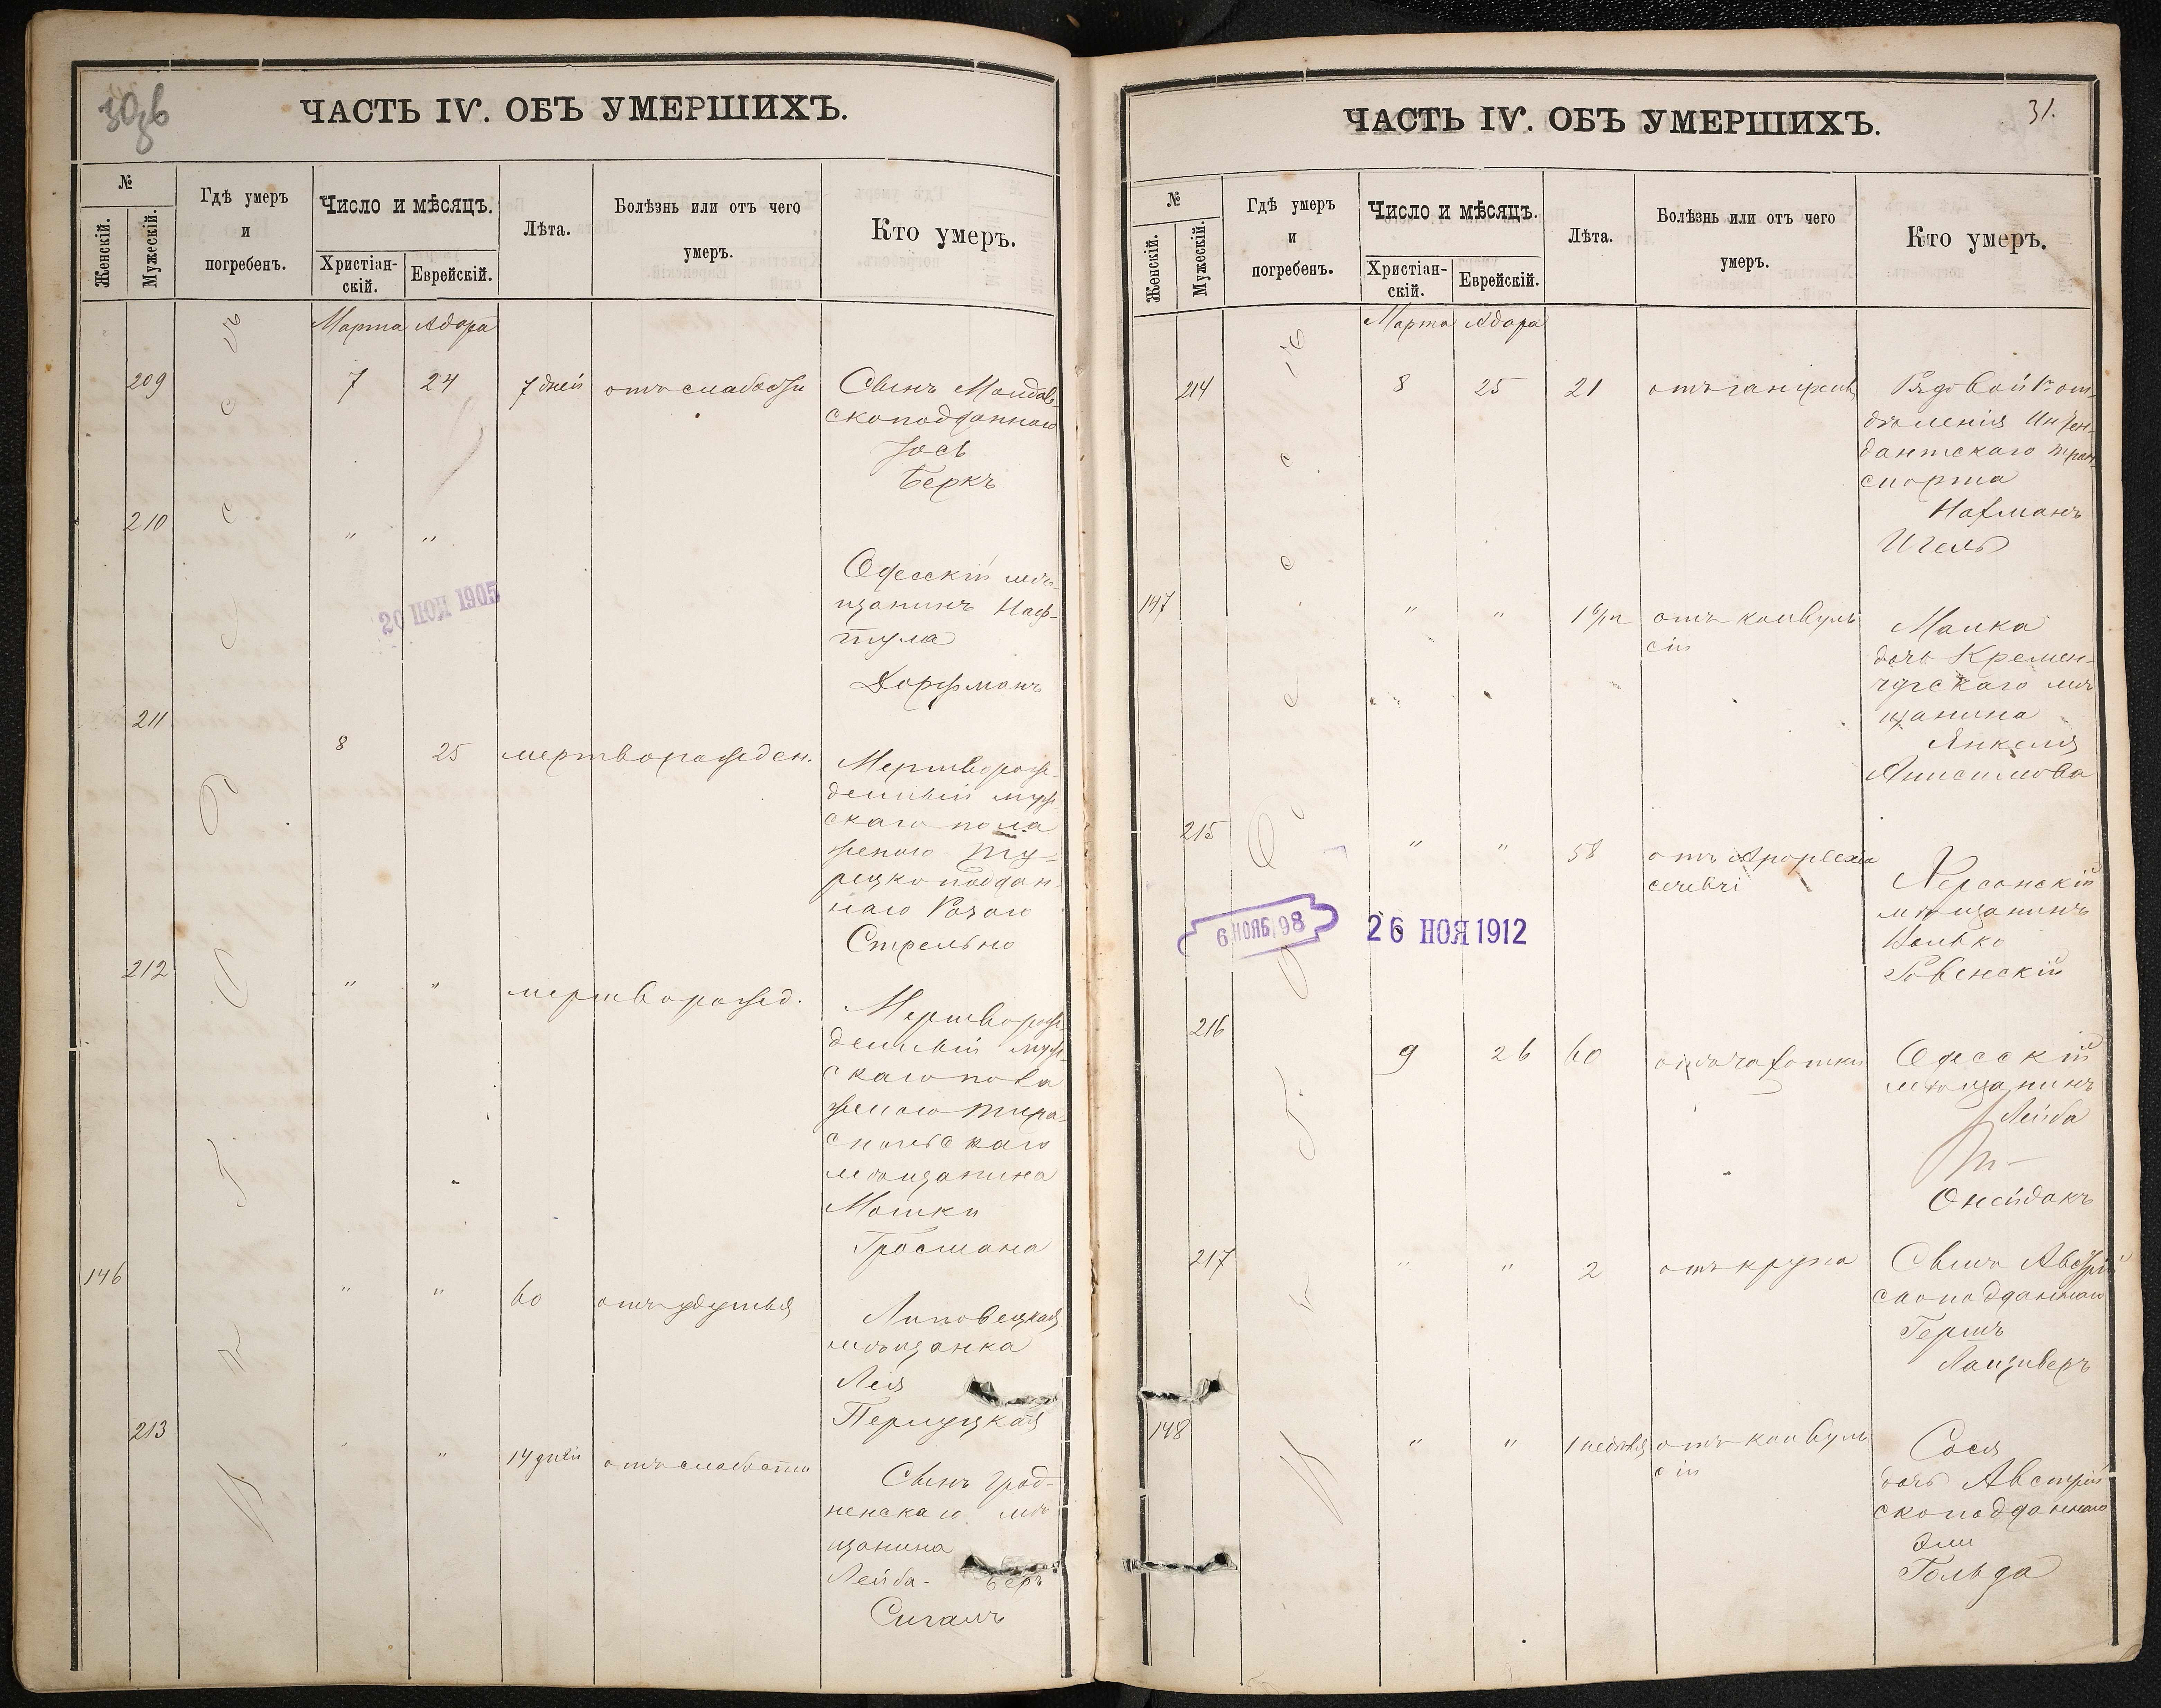 30об
ЧАСТЬ IV. ОБЪ УМЕРШИХЪ.
№
Женскій.
Мужескій.
Гдѣ умеръ
и
погребенъ.
Число и мѣсяцъ.
Христіан-
скій.
Еврейскій.
Лѣта.
Болѣзнь или отъ чего
умеръ.
Кто умеръ.
Марта Адара
209 7 24 7 дней отъ слабости Сынъ Молдав-
скоподданного
Іось
Беркъ
210 " "
Одесскій мѣ-
щанинъ Наф-
тула
Дорфманъ
20 НОЯ 1905
211 8 25 мертворожден. Мертворож-
денный муж-
скаго пола
женою Ту-
рецкоподдан-
наго
Стрельно
212 " " мертворожд.
Мертворож-
денный муж-
скаго пола
женою Тира-
спольскаго
мѣщанина
Мошки
Гросмана
146 " " 60 отъ удушья Липовецкая
мѣщанка
Лея
213 " " 14 дней отъ слабости Сынъ Грод-
ненскаго мѣ-
щанина
Лейба- Беръ
Сигалъ
Въ Одессѣ
31.
ЧАСТЬ IV. ОБЪ УМЕРШИХЪ.
№
Женскій.
Мужескій.
Гдѣ умеръ
и
погребенъ.
Число и мѣсяцъ.
Христіан-
скій.
Еврейскій.
Лѣта.
Болѣзнь или отъ чего
умеръ.
Кто умеръ.
Марта Адара
214 8 25 21 Рядовой от-
дѣленія Интен-
дантскаго тран-
спорта
Нахманъ
147 " " отъ конвуль
сіи
Малка
дочь Кремен-
чугскаго мѣ
щанина
Янкеля
Анисимова
215 " " 58 отъ Apoplexia
cerebri
Херсонскій
мѣщанинъ
Волько
Ровенскій
6 НОЯБ. 98
26 НОЯ 1912
216 9 26 60 отъ чахотки Одесскій
мѣщанинъ
Лейба
Онейдакъ
217 " " 2 отъ крупа Сынъ Австрій
скоподданнаго
Гершъ
Ланциберъ
148 " " 1 недѣля отъ конвуль
сіи
Сося
дочь Австрій
скоподданнаго
Эли
Гольда
Въ Одессѣ